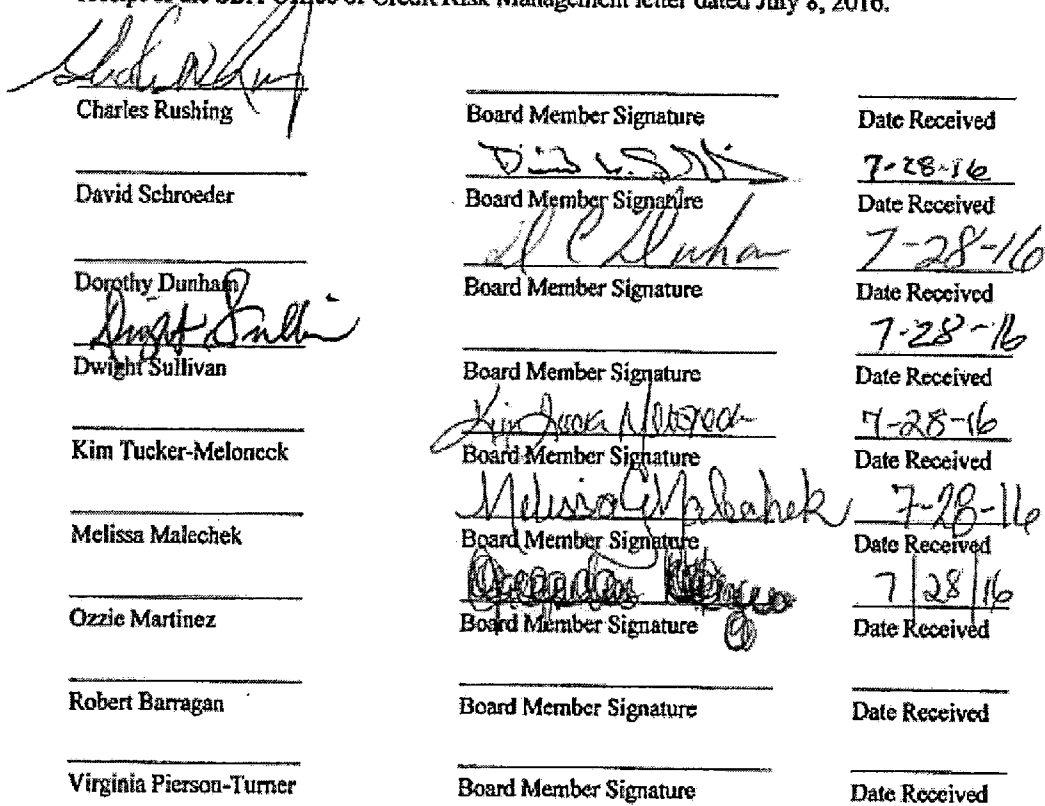 Receipt of the SBA Office of Credit Risk Management letter dated July 8, 2016.
Charles Rushing Board Member Signature Date Received
7-28-16
David Schroeder Board Member Signature Date Received
D C Dunham 7-28-16
Dorothy Dunham Board Member Signature Date Received
Dwight Sullivan 7-28-16
Dwight Sullivan Board Member Signature Date Received
Kim Tucker Meloneck 7-28-16
Kim Tucker-Meloneck Board Member Signature Date Received
Melissa G Malechek 7-28-16
Melissa Malechek Board Member Signature Date Received
7/28/16
Ozzie Martinez Board Member Signature Date Received
Robert Barragan Board Member Signature Date Received
Virginia Pierson-Turner Board Member Signature Date Received